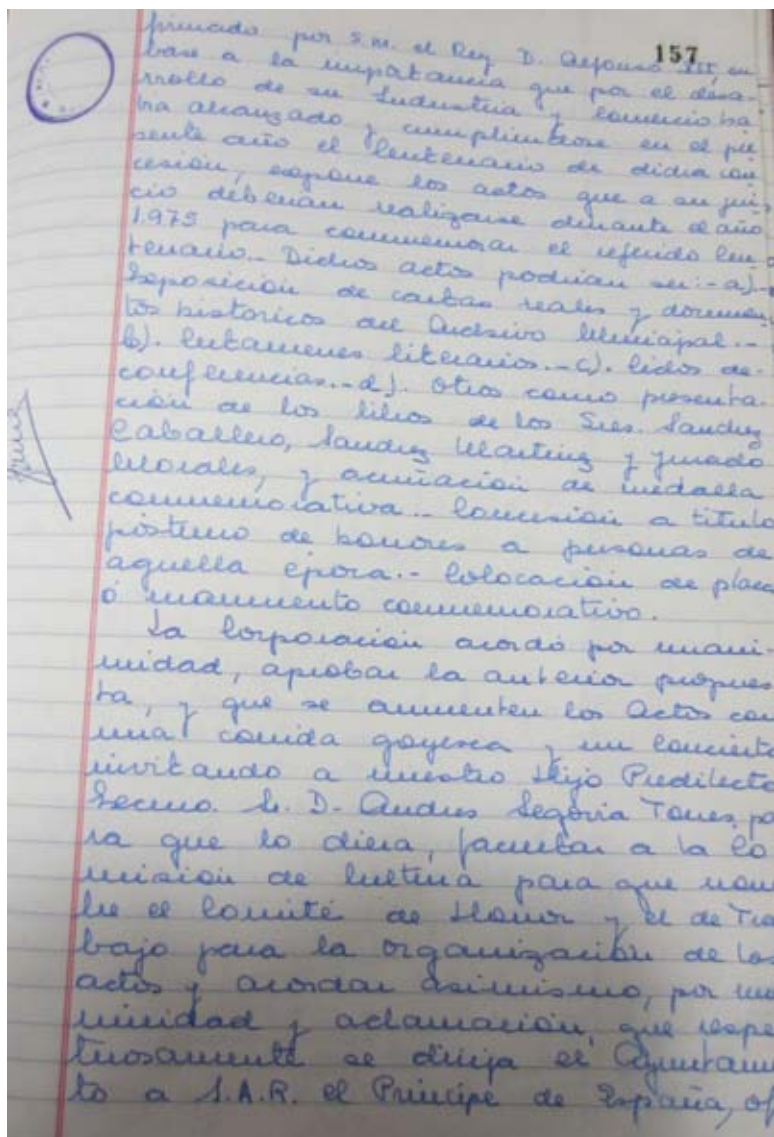 157
firmado por S.M. el Rey D. Alfonso XII, en
base a la importancia que por el desa-
rrollo de su Industria y Comercio ha
bia alcanzado y cumpliendose en el pre
sente año el Centenario de dicha con
cesión, expone los actos que a su jui
cio deberian realizarse durante el año
1.975 para conmemorar el referido Cen-
tenario.- Dichos actos podrian ser:- a).-
Exposición de cartas reales y documen
tos historicos del Archivo Municipal.-
b). Certamenes literarios.- c). Ciclos de
conferencias.- d). Otros como presenta-
ción de los libros de los Sres. Sanchez
Caballero, Sanchez Martinez y Jurado
Morales, y acuñación de medalla
conmemorativa.- Concesión a titulo
póstumo de honores a personas de
aquella época.- Colocación de placa
ó monumento conmemorativo.
La Corporación acordó por unani-
midad, aprobar la anterior propues
ta, y que se aumenten los Actos con
una corrida goyesca y un concierto
invitando a nuestro Hijo Predilecto
Excmo. Sr. D. Andres Segovia Torres, pa
ra que lo diera, facultar a la Co
misión de Cultura para que nom
bre el Comité de Honor y el de Tra
bajo para la organización de los
actos y acordar asimismo, por una
nimidad y aclamación, que respe
tuosamente se dirija el Ayuntamien
to a S.A.R. el Principe de España, of